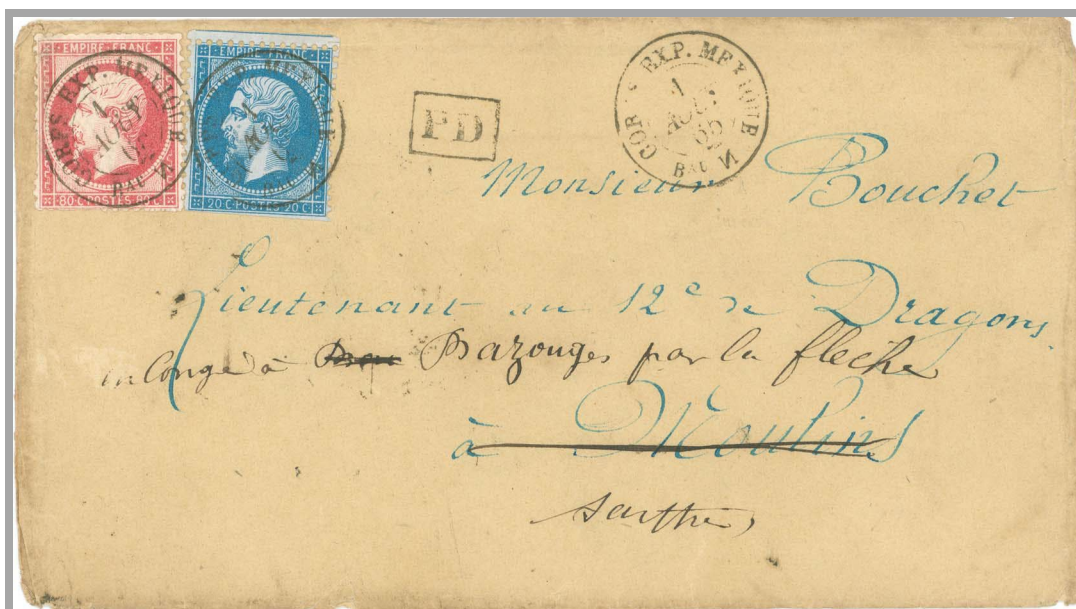 EMPIRE FRANC
80 C POSTES
EMPIRE FRANC
20 C POSTES 20 C
CORPS EXP. MEXIQUE
1
AOUT
CORPS EXP. MEXIQUE
1
PD
CORPS EXP. MEXIQUE
1
AOUT
Bau N
Monsieur Bouchet
Lieutenant au 12e de Dragons
en congé à Bazouges par la fleche
à Moulins
Sarthe